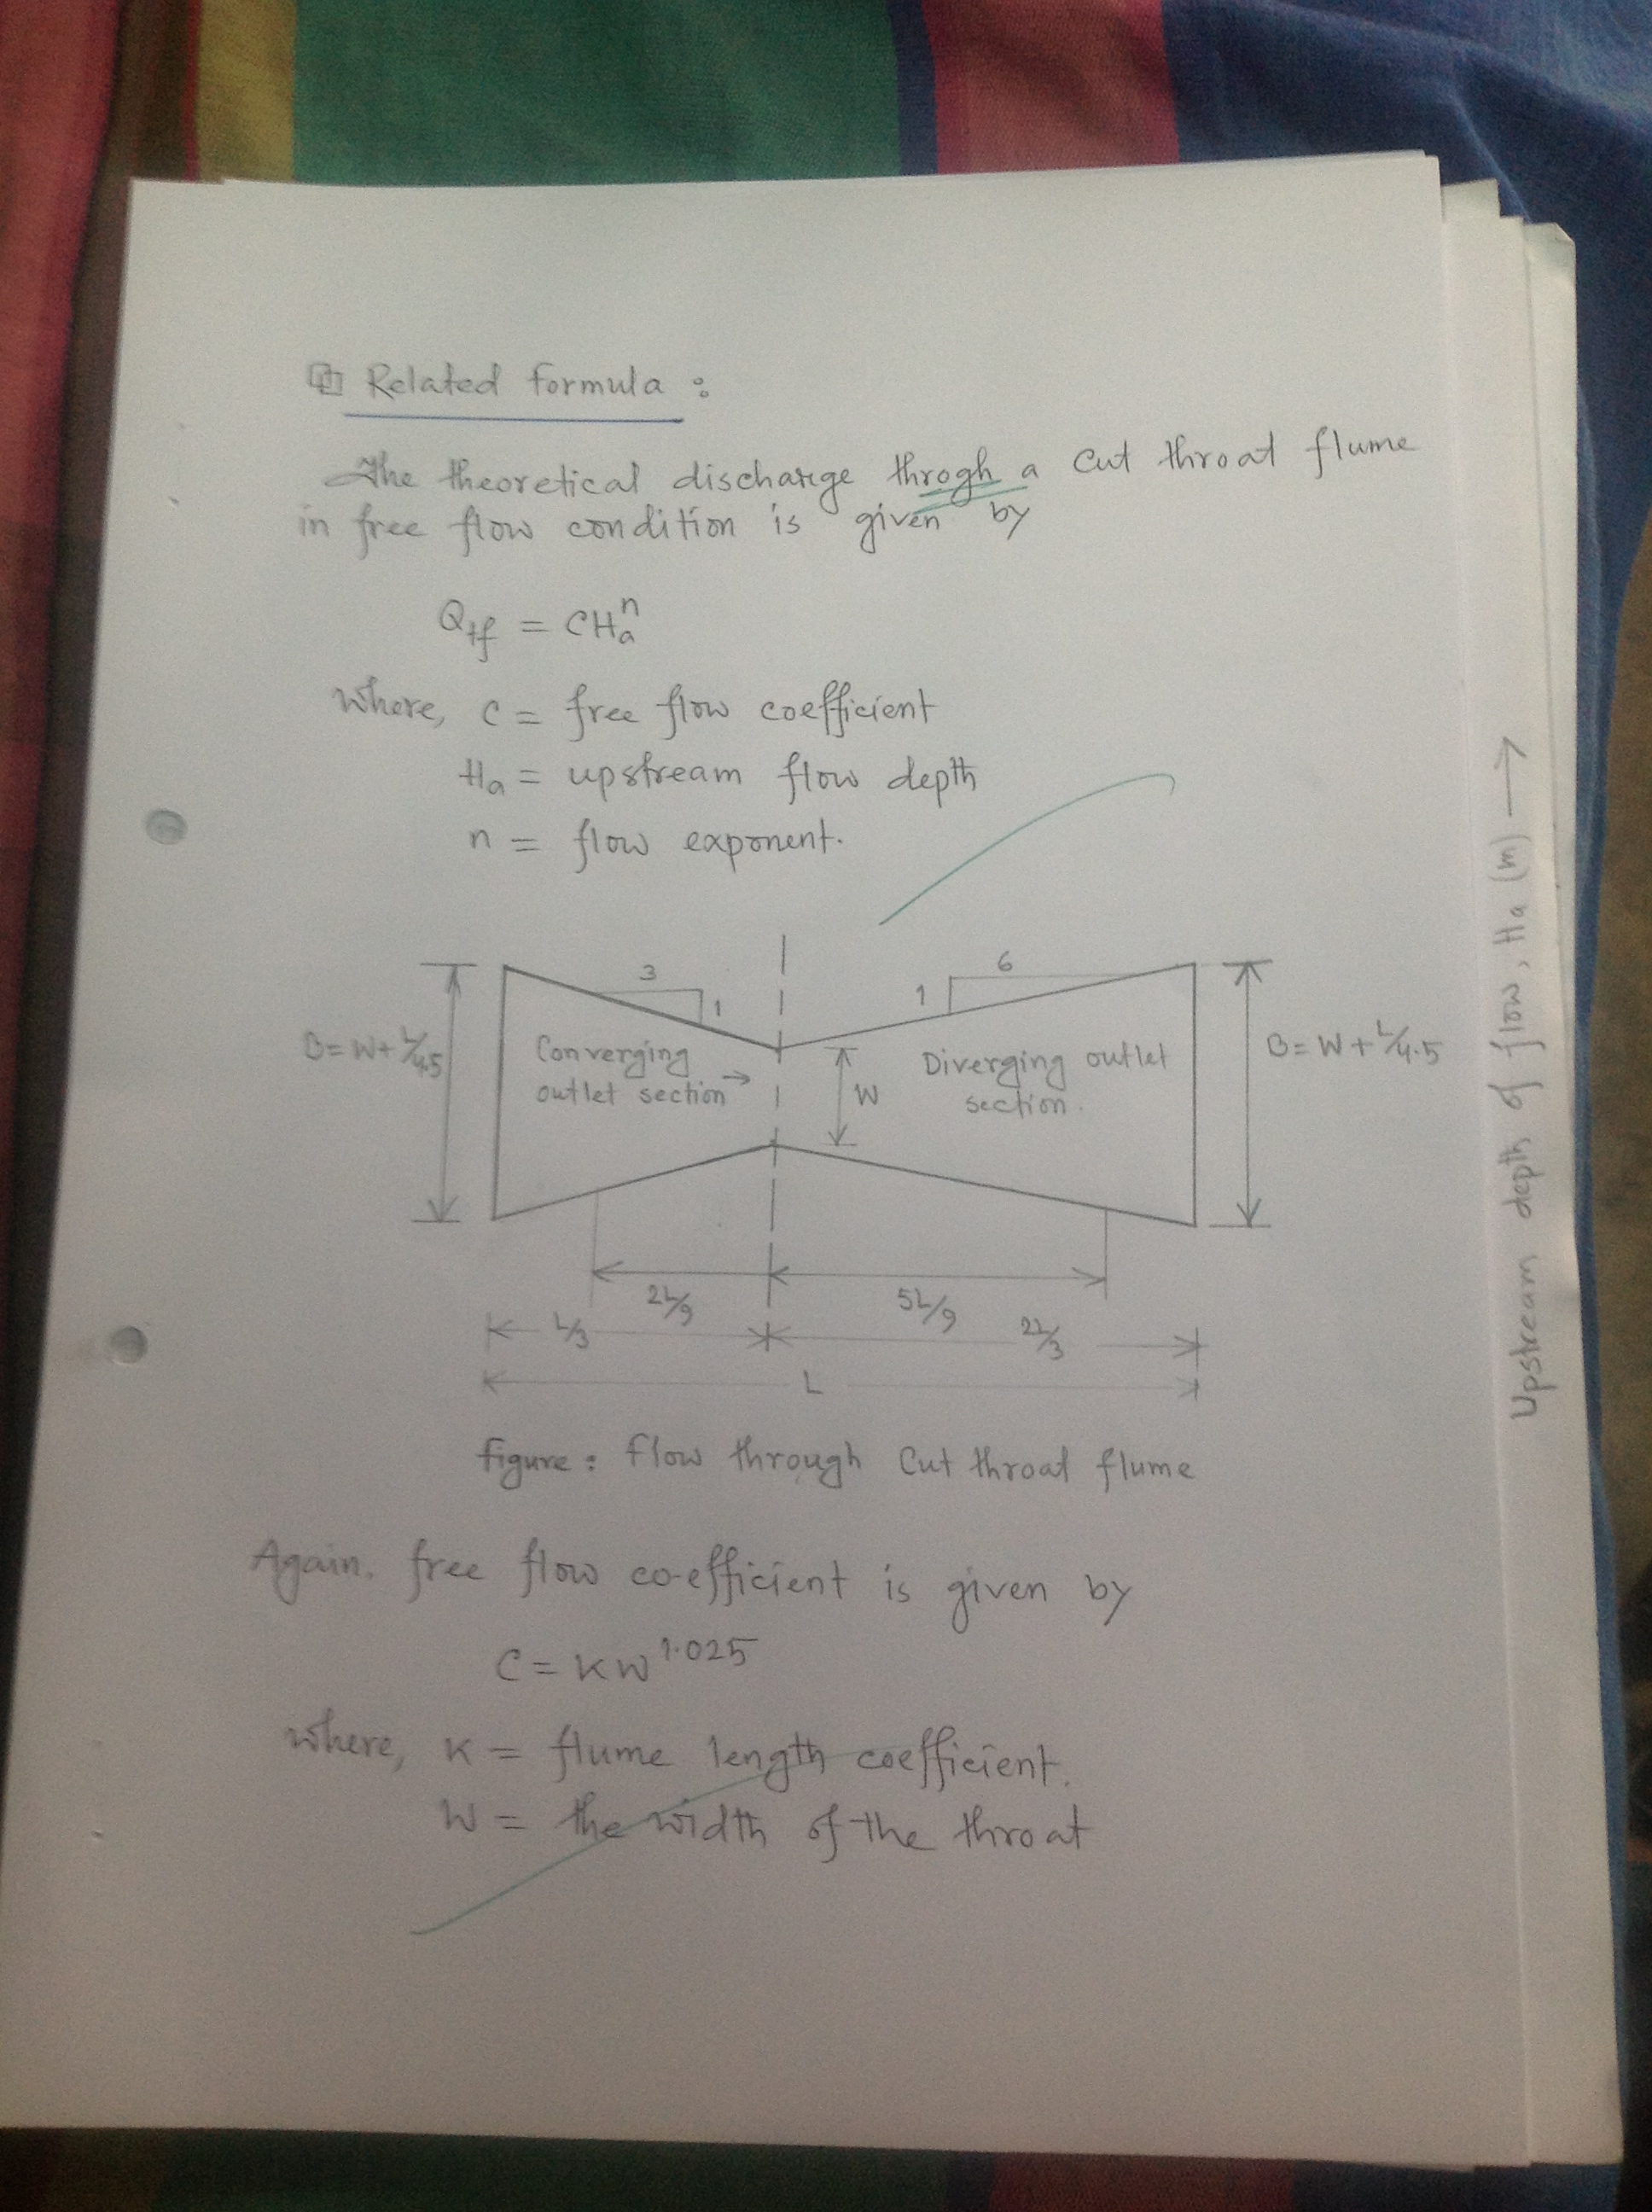 Related formula :
The theoretical discharge throgh a cut throat flume
in free flow condition is given by
Qtf = CHaⁿ
where, C = free flow coefficient
Ha = upstream flow depth
n = flow exponent.
3
1
6
1
B = W + L/4.5
Converging
outlet section →
W
Diverging outlet
section.
B = W + L/4.5
2L/9
5L/9
L/3
2L/3
L
figure : Flow through Cut throat flume
Again. free flow co-efficient is given by
C = KW^1.025
where, K = flume length coefficient.
W = the width of the throat
Upstream depth of flow, Ha (m) →